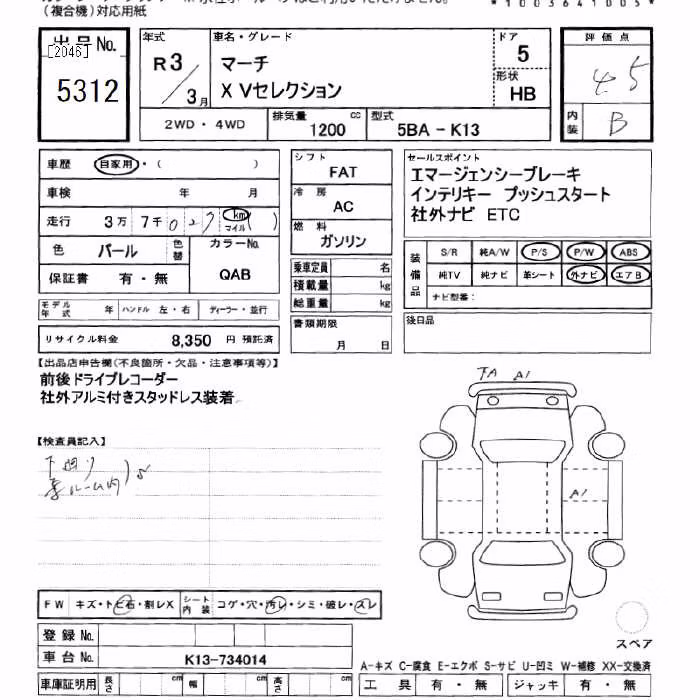 （複合機）対応用紙
*1003641005*
出品No.
[2046]
5312
年式
R3/3月
車名・グレード
マーチ
X Vセレクション
ドア
5
形状
HB
評価点
4.5
内装
B
2WD・4WD
排気量
1200 cc
型式
5BA-K13
車歴
自家用・（ ）
車検 年 月
走行 3万 7千 027 km マイル ( )
色 パール
色替
カラーNo.
QAB
保証書 有・無
モデル年式 年
ハンドル 左・右
ディーラー・並行
リサイクル料金 8,350 円 預託済
シフト
FAT
冷房
AC
燃料
ガソリン
乗車定員 名
積載量 kg
総重量 kg
書類期限
月 日
セールスポイント
エマージェンシーブレーキ
インテリキー プッシュスタート
社外ナビ ETC
装備品
S/R 純A/W P/S P/W ABS
純TV 純ナビ 革シート 外ナビ エアB
ナビ型番：
後日品
【出品店申告欄(不良箇所・欠品・注意事項等)】
前後ドライブレコーダー
社外アルミ付きスタッドレス装着
【検査員記入】
下回り
ルーム内
FW キズ・トビ石・割レX
シート内装 コゲ・穴・汚レ・シミ・破レ・スレ
登録No.
車台No. K13-734014
車庫証明用 長さ cm 幅 cm 高さ cm
A1
A1
スペア
A-キズ C-腐食 E-エクボ S-サビ U-凹ミ W-補修 XX-交換済
工具 有・無 ジャッキ 有・無